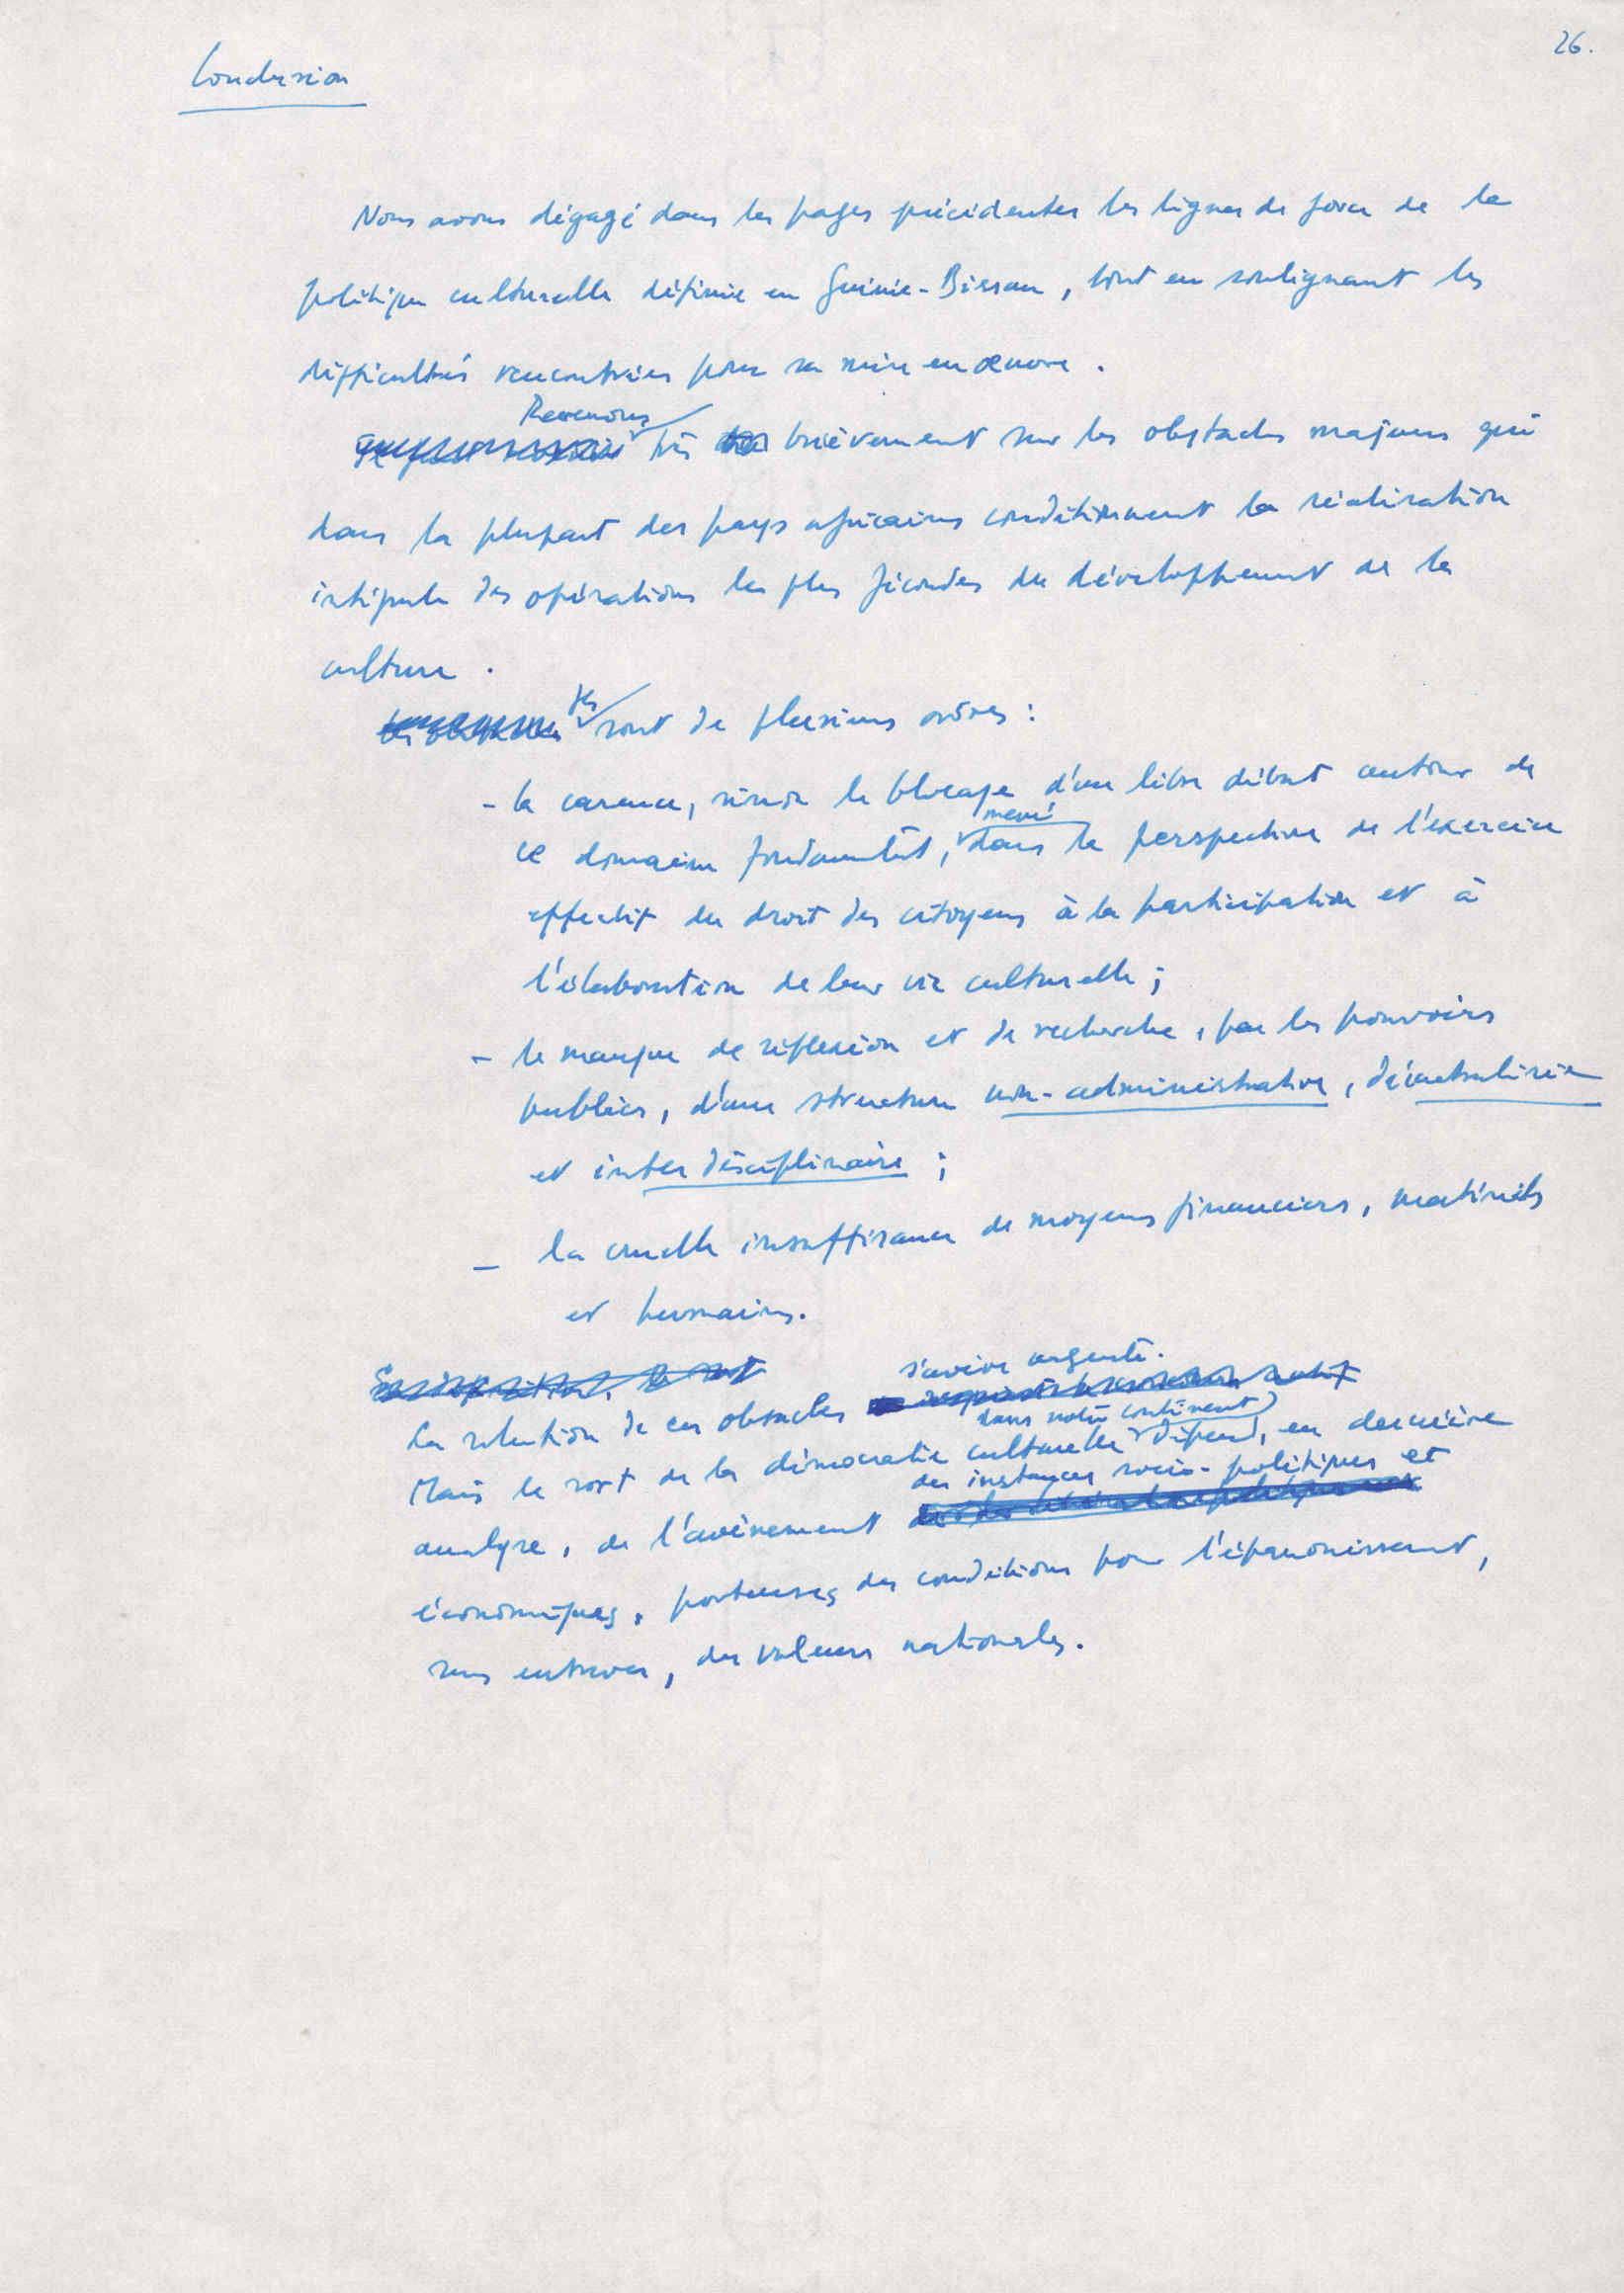 26.
Conclusion
Nous avons dégagé dans les pages précédentes les lignes de force de la
politique culturelle définie en Guinée-Bissau, tout en soulignant les
difficultés rencontrées pour sa mise en œuvre.
Revenons
très brièvement sur les obstacles majeurs qui
dans la plupart des pays africains conditionnent la réalisation
intégrale des opérations les plus fécondes du développement de la
culture.
Ils sont de plusieurs ordres :
- la carence, sinon le blocage d'un libre débat autour de
mené
ce domaine fondamental, dans la perspective de l'exercice
effectif du droit des citoyens à la participation et à
l'élaboration de leur vie culturelle ;
- le manque de réflexion et de recherche, par les pouvoirs
publics, d'une structure non-administrative, décentralisée
et interdisciplinaire ;
- la cruelle insuffisance de moyens financiers, matériels
et humains.
s'avère urgente.
La solution de ces obstacles
dans notre continent
Mais le sort de la démocratie culturelle dépend, en dernière
des instances socio-politiques et
analyse, de l'avènement
économiques, porteuses des conditions pour l'épanouissement,
sans entraves, des valeurs nationales.